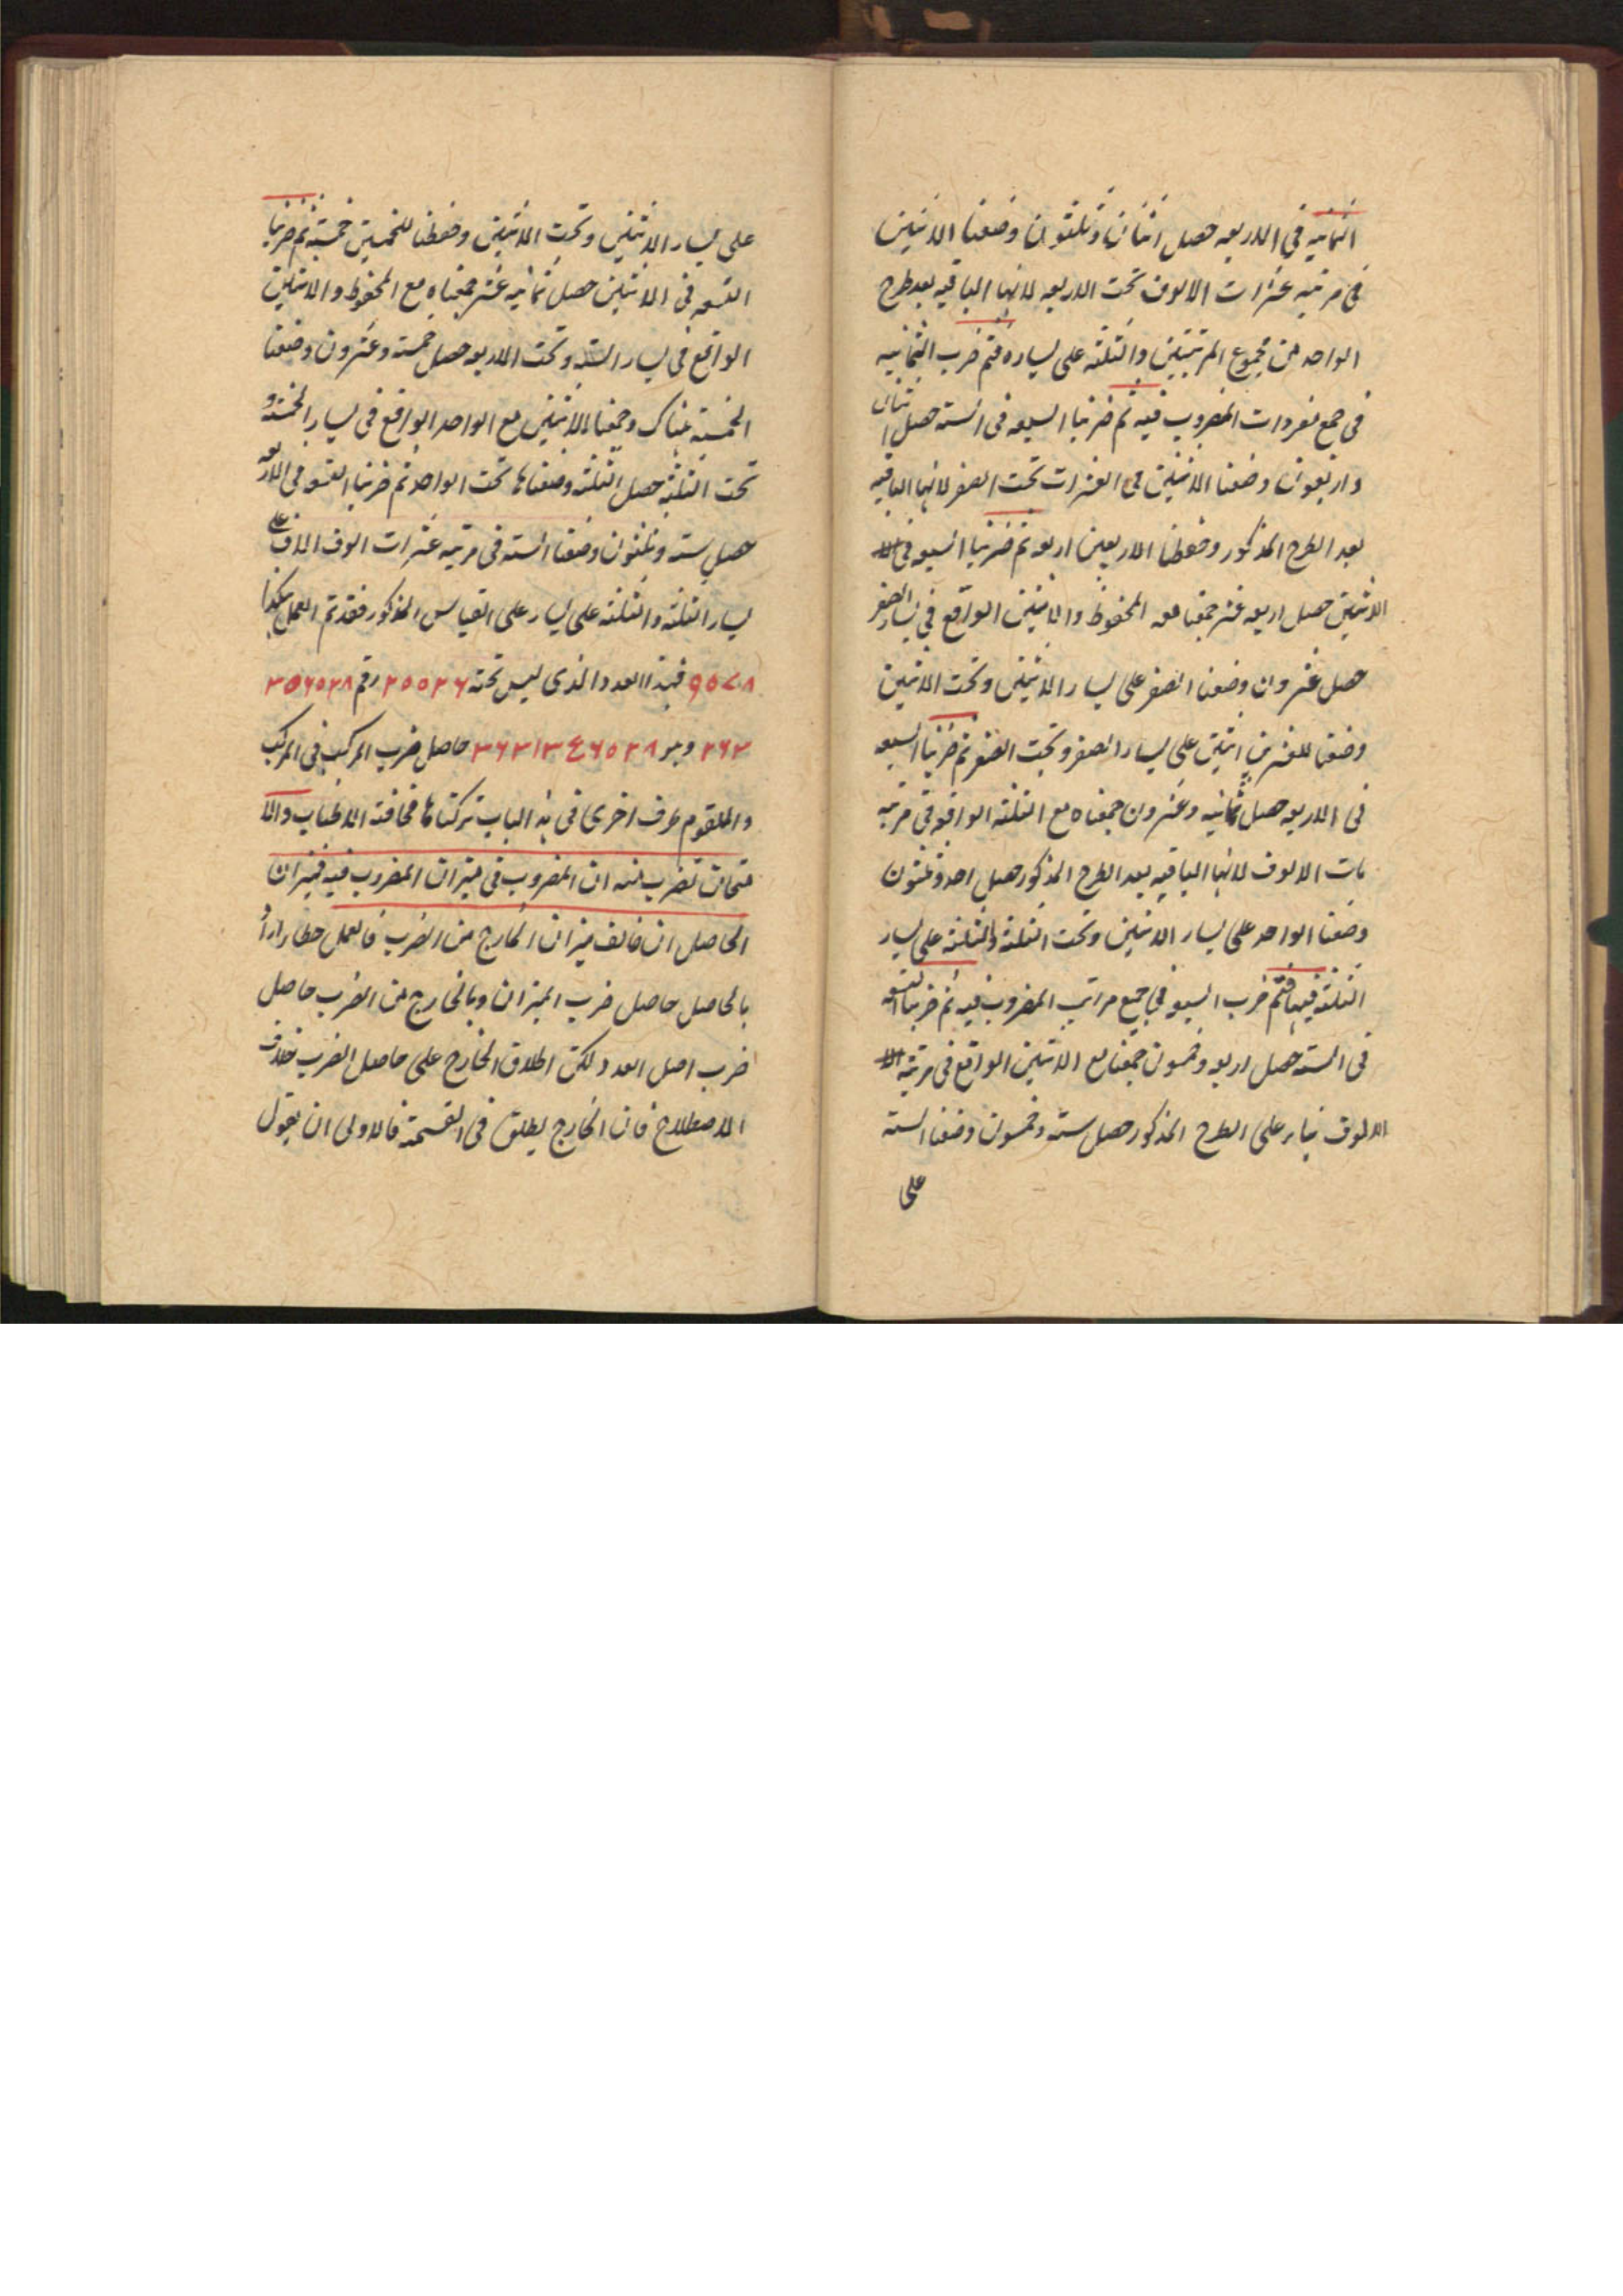 الثمانيه في الاربعه حصل اثنان وثلثون وضعنا الاثنين
في مرتبه عشرات الالوف تحت الاربعه لانها الباقيه بعد طرح
الواحد من مجموع المرتبتين والثلثه على يساره فتم ضرب الثمانيه
في جمع مفردات المضروب فيه ثم ضربنا السبعه في السته حصل اثنان
واربعون وضعنا الاثنين في العشرات تحت الصفر لانها الباقيه
بعد الطرح المذكور وحفظنا للاربعين اربعه ثم ضربنا السبعه في الا
الاثنين حصل اربعه عشر جمعنا معه المحفوظ والاثنين الواقع في يسار الصفر
حصل عشرون وضعنا الصفر على يسار الاثنين وتحت الاثنين
وضعنا للعشرين اثنين على يسار الصفر وتحت الصفر ثم ضربنا السبعه
في الاربعه حصل ثمانيه وعشرون جمعناه مع الثلثه الواقعه في مرتبه
مات الالوف لانها الباقيه بعد الطرح المذكور حصل احد وثلثون
وضعنا الواحد على يسار الاثنين وتحت الثلثة والثلثه على يسار
الثلثه فيها فتم ضرب السبعه في جميع مراتب المضروب فيه ثم ضربنا التسعه
في السته حصل اربعه وخمسون جمعنا مع الاثنين الواقع في مرتبة الا
الالوف بناء على الطرح المذكور حصل سته وخمسون وضعنا السته
على
على يسار الاثنين وتحت الاثنين وحفظنا للخمسين خمسة ثم ضربنا
التسعه في الاثنين حصل ثمانيه عشر جمعناه مع المحفوظ والاثنين
الواقع في يسار السته وتحت الاربعه حصل خمسه وعشرون وضعنا
الخمسة هناك وجمعنا الاثنين مع الواحد الواقع في يسار الخمسه و
تحت الثلثه حصل الثلثه وضعناها تحت الواحد ثم ضربنا التسعه في الاربعه
حصل سته وثلثون وضعنا السته في مرتبه عشرات الوف الالف على
يسار الثلثه والثلثه على يسار على القياس المذكور فقد تم العمل هكذا
٩٥٧٠٨ فهذا العدد الذى ليس تحته ٢٥٥٢٦ رقم ٣٥٦٥٢٨
٢٦٣ وهو ٣٦٣١٣٤٦٥٢٨ حاصل ضرب المركب في المركب
وللقوم طرف اخرى في هذ الباب تركناها مخافة الاطناب والا
متحان تضرب ميزان المضروب في ميزان المضروب فيه فميزان
الحاصل ان خالف ميزان الخارج من الضرب فالعمل خطا اراد
بالحاصل حاصل ضرب الميزان وبالخارج من الضرب حاصل
ضرب اصل العدد لكن اطلاق الخارج على حاصل الضرب خلاف
الاصطلاح فان الخارج يطلق في القسمة فالاولى ان يقول